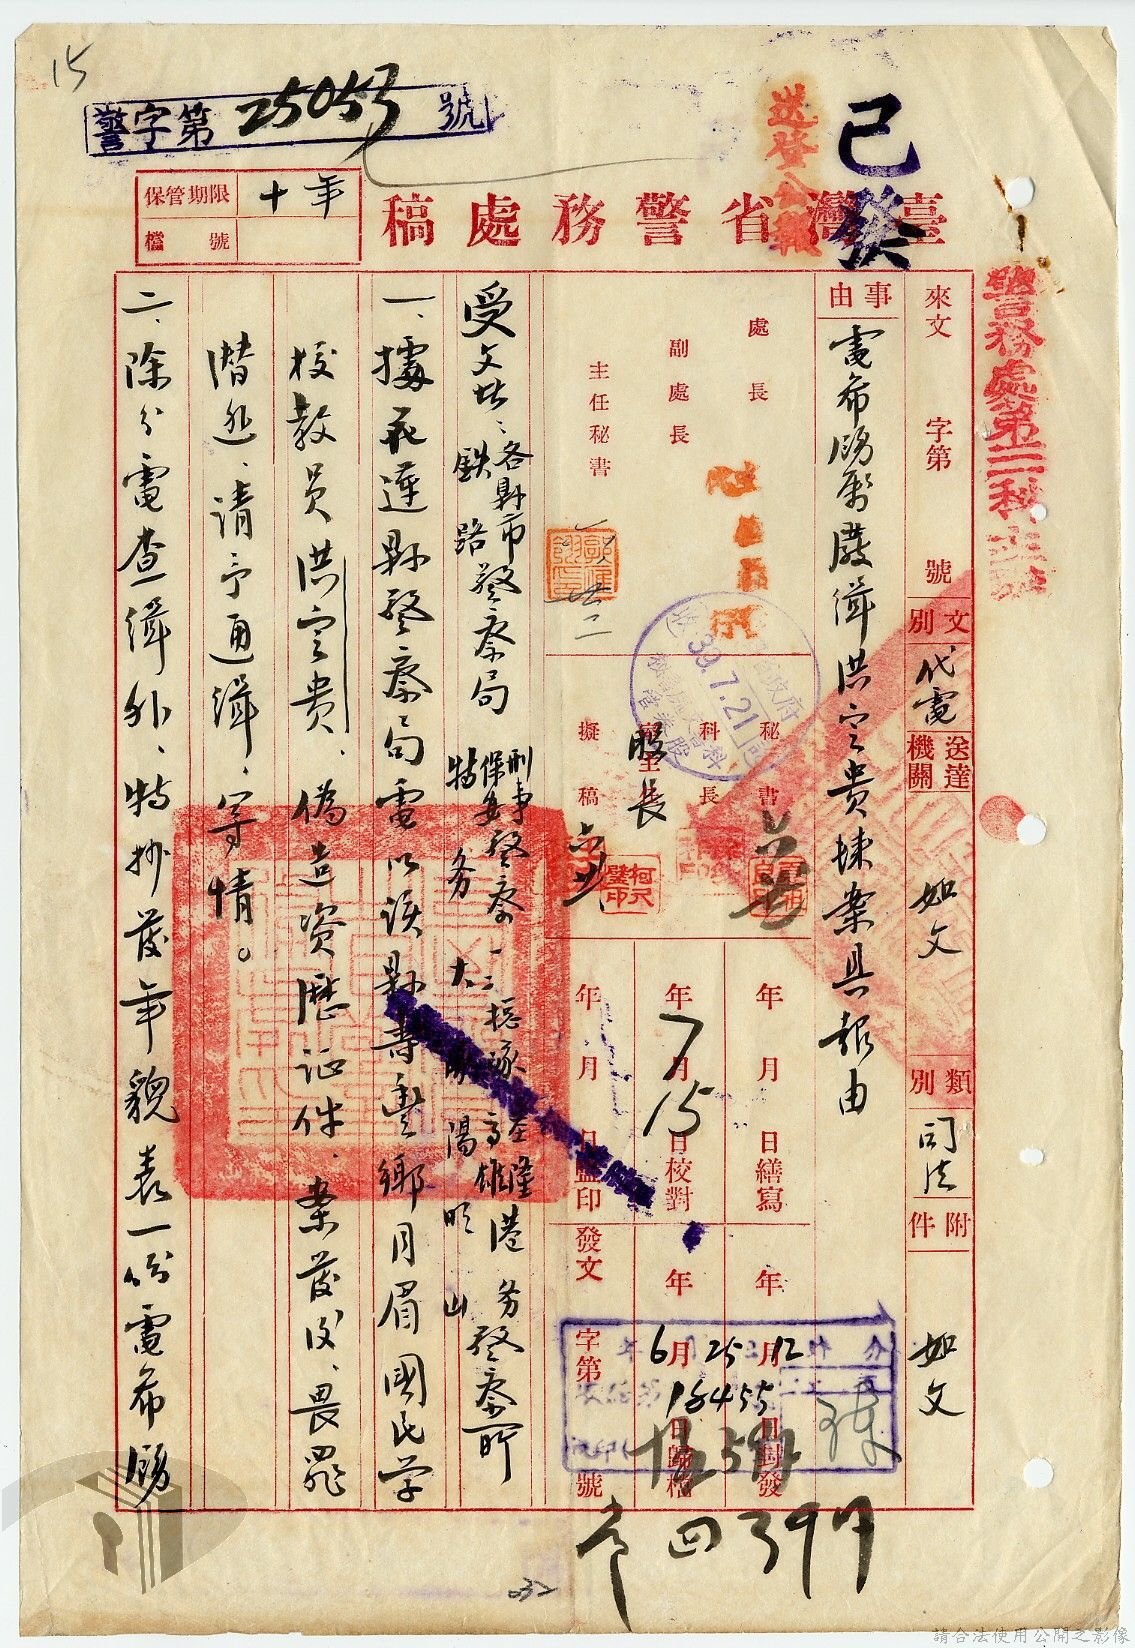 15
警字第25053號
送登公報
已發
保管期限 十年
檔號
臺灣省警務處稿
警務處第三科
來文 字第 號
文別 代電
送達機關 如文
類別 司法
附件 如文
事由 電希飭屬嚴緝洪定貴歸案具報由
處長
副處長
主任秘書
秘書
科長
股長
擬稿
年 月 日繕寫
年7月15日校對
年 月 日蓋印
39.7.21
年 月 日對發
年 月 日歸檔
發文 字第 號
受文者：各縣市警察局 鐵路
刑事 保安警察一、二總隊 基隆 高雄港務警察所
特務大隊 陽明山
一、據花蓮縣警察局電以該縣壽豐鄉月眉國民學
校教員洪定貴、偽造資歷证件、案發後、畏罪
潛逃、請予通緝、等情。
二、除分電查緝外、特抄發年貌表一份電希飭
032
請合法使用公開之影像